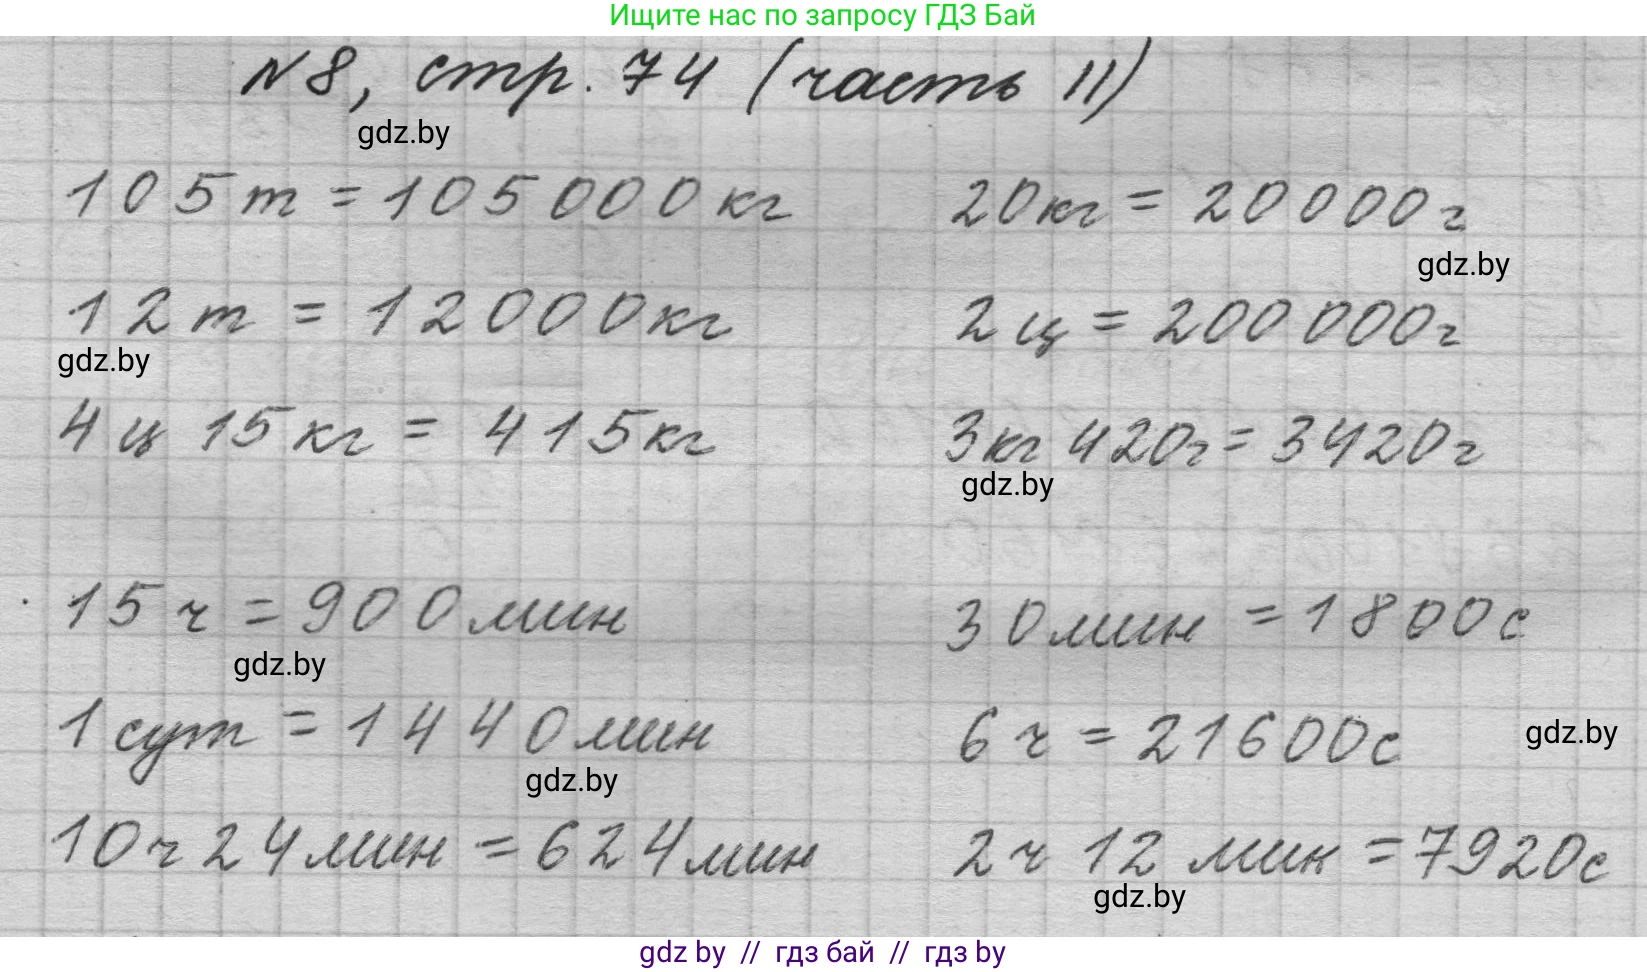 Ищите нас по запросу ГДЗ Бай
№8, стр. 74 (часть II)
gdz.by
105 т = 105 000 кг 20 кг = 20 000 г
gdz.by
12 т = 12 000 кг 2 ц = 200 000 г
gdz.by
4 ц 15 кг = 415 кг 3 кг 420 г = 3420 г
gdz.by
15 ч = 900 мин 30 мин = 1800 с
gdz.by
1 сут = 1440 мин 6 ч = 21600 с gdz.by
gdz.by
10 ч 24 мин = 624 мин 2 ч 12 мин = 7920 с
gdz.by
gdz by // гдз бай // гдз by